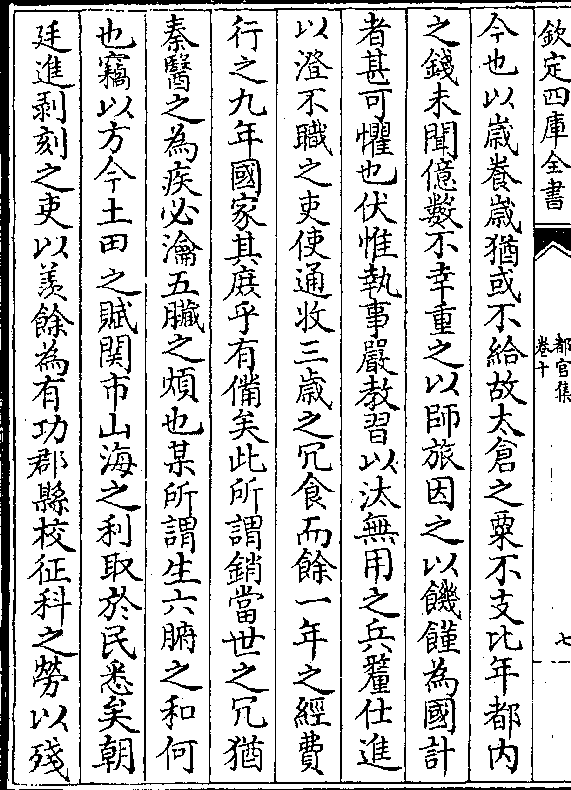 欽定四庫全書
都官集
卷十
七
今也以歳養歳猶或不給故太倉之粟不支比年都内
之錢未聞億數不幸重之以師旅因之以饑饉為國計
者甚可懼也伏惟執事嚴教習以汰無用之兵釐仕進
以澄不職之吏使通收三歳之冗食而餘一年之經費
行之九年國家其庻乎有備矣此所謂銷當世之冗猶
秦醫之為疾必瀹五臟之煩也某所謂生六腑之和何
也竊以方今土田之賦関市山海之利取於民悉矣朝
廷進剥刻之吏以羨餘為有功郡縣校征科之勞以殘